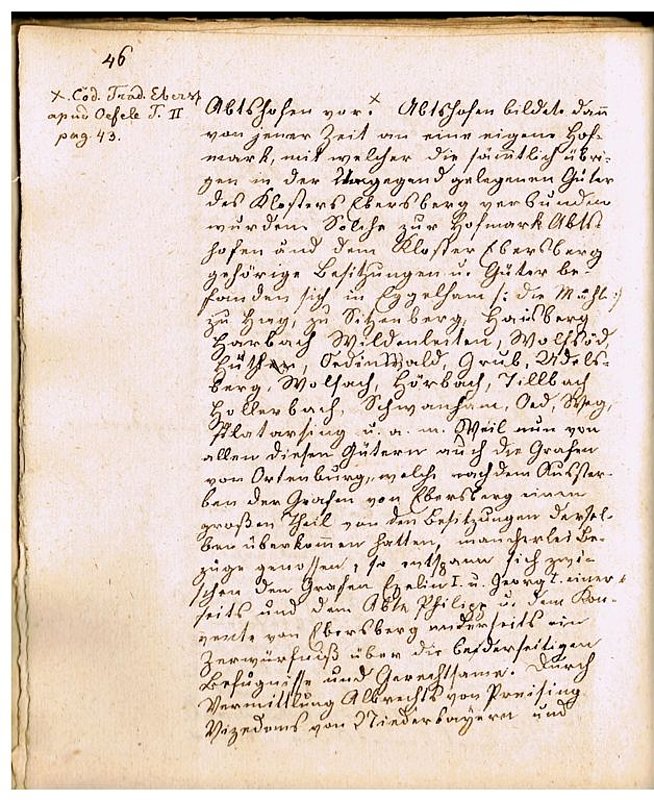 46
x. Cod. Trad. Ebersp
apud Oefele T. II
pag. 43.
Abtshofen vor. x Abtshofen bildete dan̄
von jener Zeit an eine eigene Hof-
mark, mit welcher die sämtlich übri-
gen in der Umgegend gelegenen Güter
des Klosters Ebersberg verbunden
wurden. Solche zur Hofmark Abts-
hofen und dem Kloster Ebersberg
gehörige Besitzungen u. Güter be-
fanden sich in Eggelham /: die Mühl :/
zu Hag, zu Sitzenberg, Hausberg
Harbach Wildenleiten, Wolfsöd,
Hüther, Oedinwald, Grub, Udels-
berg, Wolfach, Hörbach, Tillbach
Hollerbach, Schwanham, Oed, Weg,
Platarsing u. a. m. Weil nun von
allen diesen Gütern auch die Grafen
von Ortenburg, welche nach dem Ausster-
ben der Grafen von Ebersberg einen
großen Theil von den Besitzungen dersel-
ben überkommen hatten, mancherlei Be-
züge genossen, so entspann sich zwi-
schen den Grafen Ezelin I. u. Georg I. einer-
seits und dem Abte Philipp u. dem Kon-
vente von Ebersberg anderseits ein
Zerwürfniß über die beiderseitigen
Befugnisse und Gerechtsame. Durch
Vermittlung Albrechts von Preising
Vizedoms von Niederbayern und